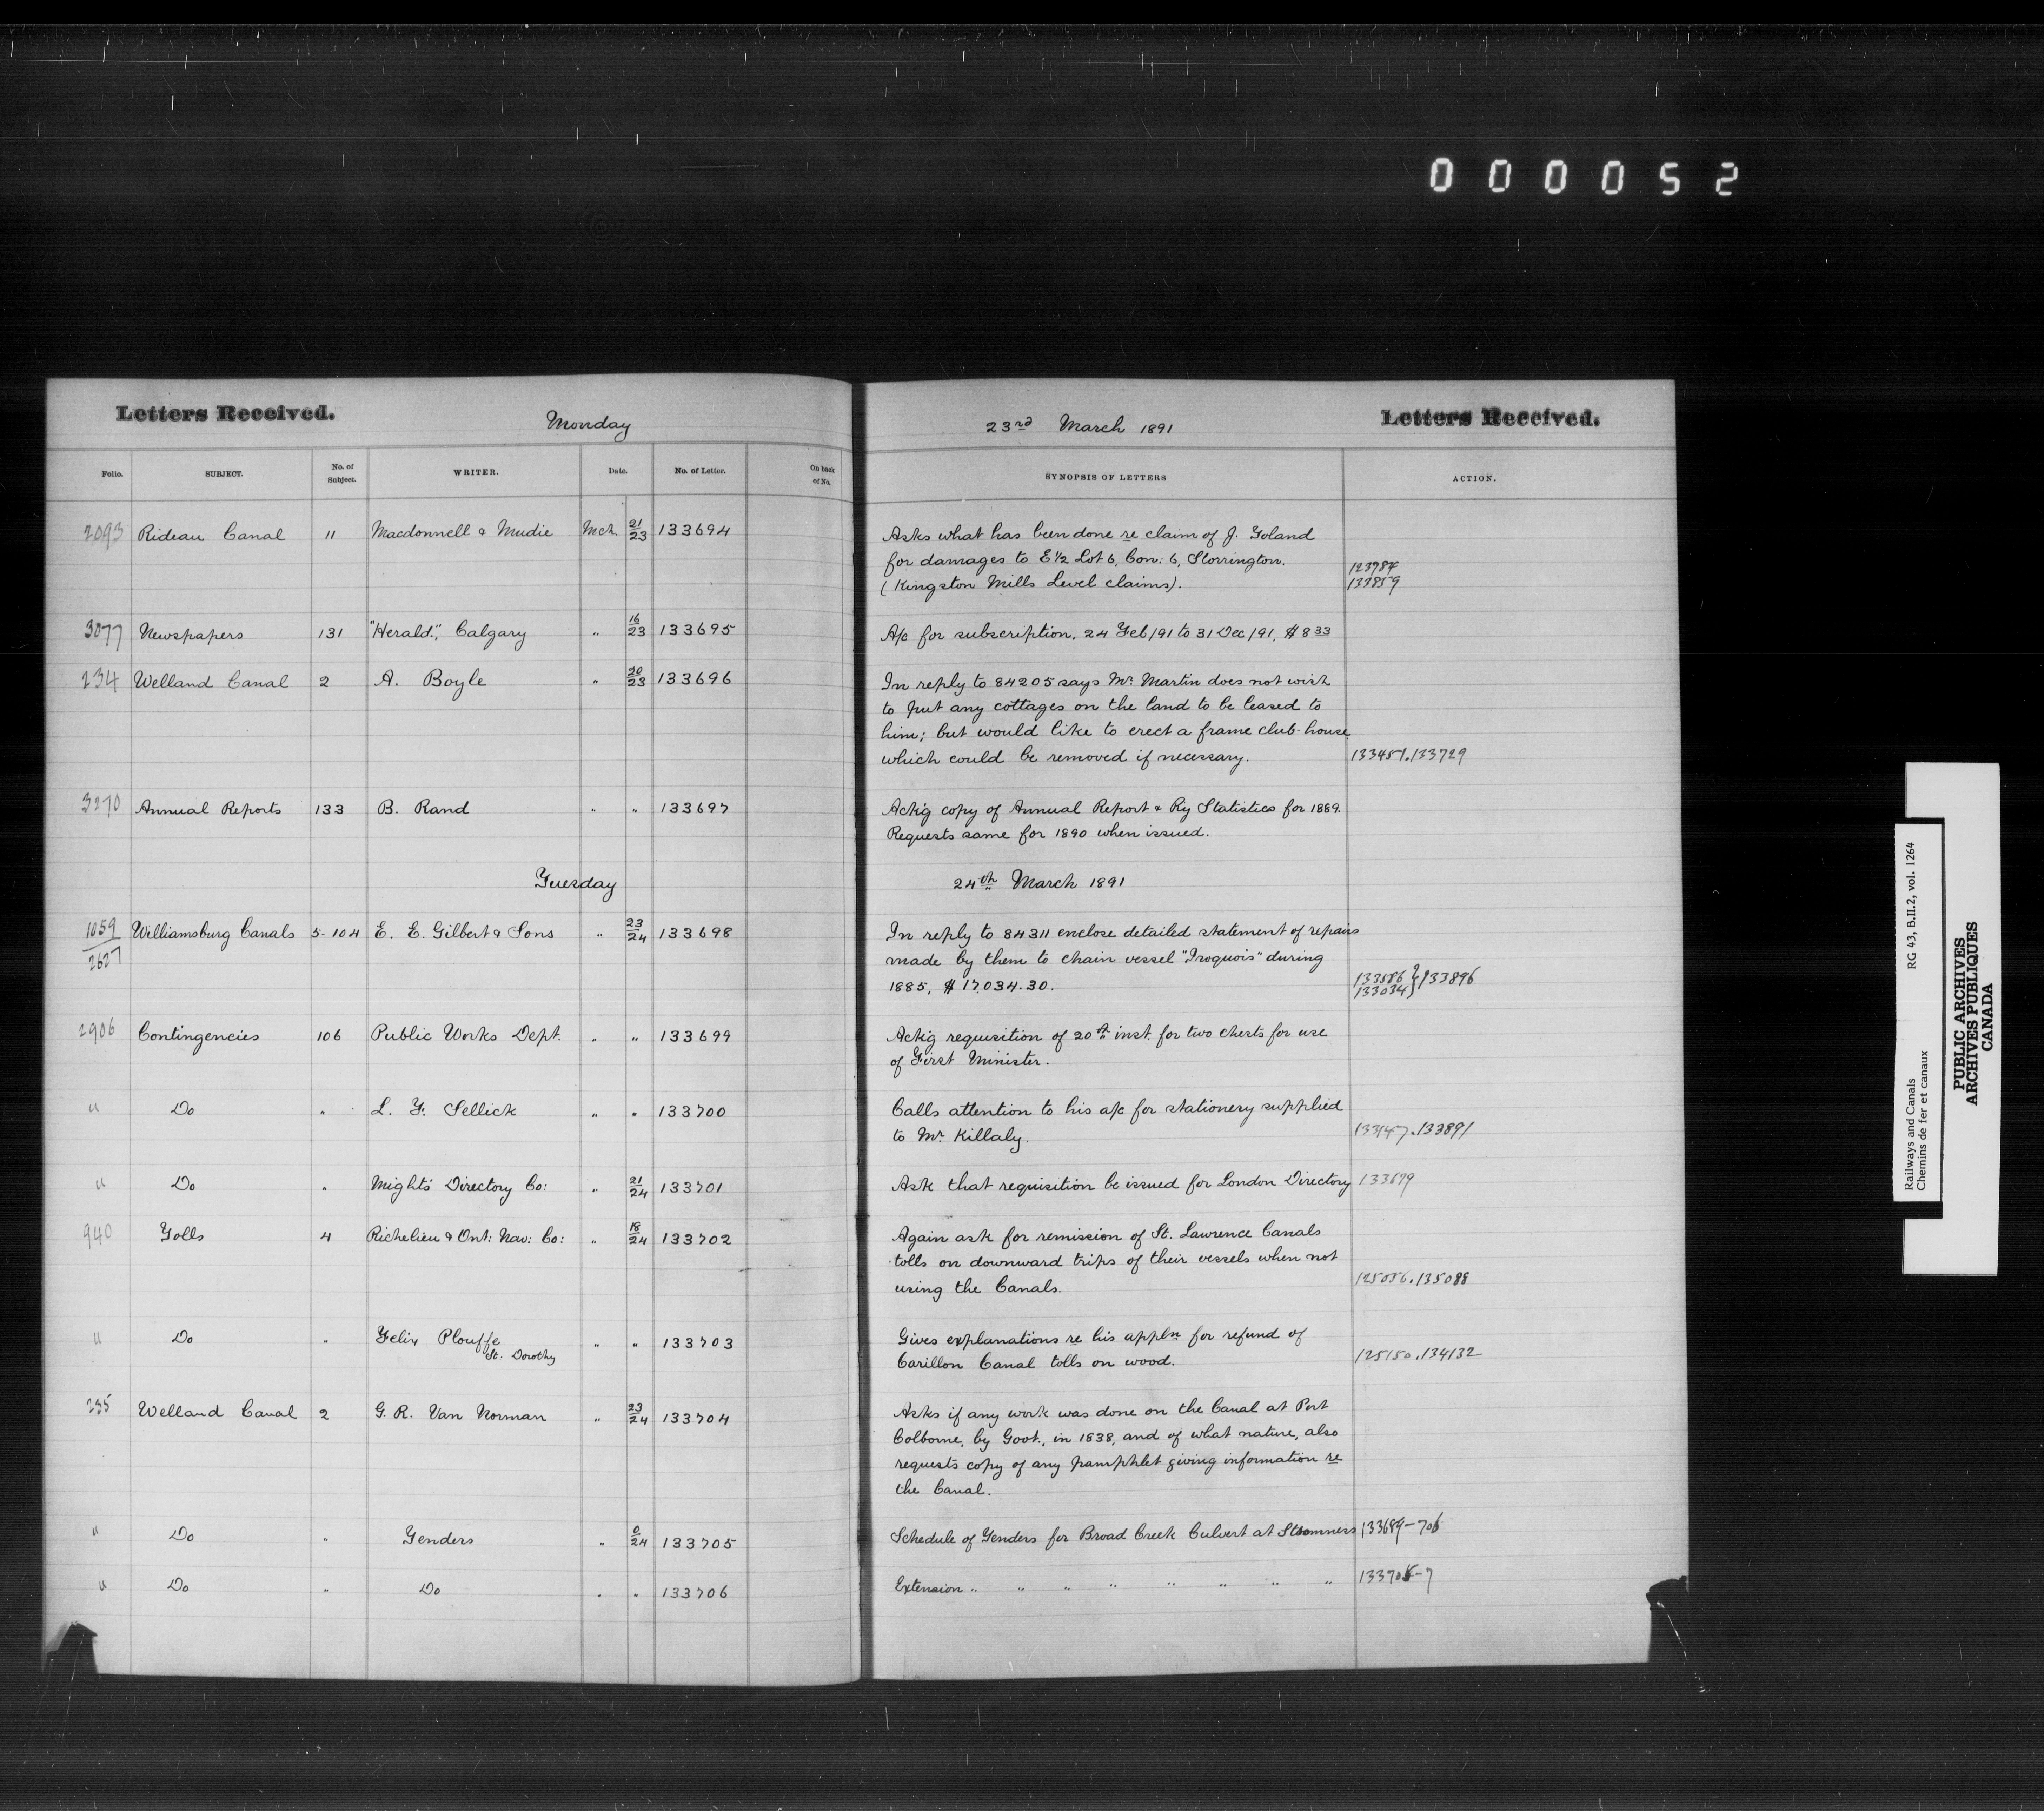 000052
Letters Received. Monday 23rd March 1891 Letters Received.
Folio. SUBJECT. No. of Subject. WRITER. Date. No. of Letter. On back of No. SYNOPSIS OF LETTERS ACTION.
2093 Rideau Canal 11 Macdonnell & Mudie Mch. 21/23 133694 Asks what has been done re claim of J. Toland
for damages to E½ Lot 6, Con: 6, Storrington. 123784
(Kingston Mills Level claims). 133859
3077 Newspapers 131 "Herald", Calgary " 16/23 133695 A/c for subscription, 24 Feb/91 to 31 Dec/91, $8 33
234 Welland Canal 2 A. Boyle " 20/23 133696 In reply to 84205 says Mr. Martin does not wish
to put any cottages on the land to be leased to
him; but would like to erect a frame club-house
which could be removed if necessary. 133451.133729
3270 Annual Reports 133 B. Rand " " 133697 Ackg copy of Annual Report & Ry Statistics for 1889.
Requests same for 1890 when issued.
Tuesday 24th March 1891
1059/2627 Williamsburg Canals 5-104 E. E. Gilbert & Sons " 23/24 133698 In reply to 84311 enclose detailed statement of repairs
made by them to chain vessel "Iroquois" during
1885, $17,034.30. 133586 133034 } 133896
2906 Contingencies 106 Public Works Dept. " " 133699 Ackg requisition of 20th inst. for two chests for use
of First Minister.
" Do " L. T. Sellick " " 133700 Calls attention to his a/c for stationery supplied
to Mr. Killaly. 133147.133891
" Do " Might's Directory Co: " 21/24 133701 Ask that requisition be issued for London Directory 133679
940 Tolls 4 Richelieu & Ont: Nav: Co: " 18/24 133702 Again ask for remission of St. Lawrence Canals
tolls on downward trips of their vessels when not
using the Canals. 125056.135088
" Do " Felix Plouffe " " 133703 Gives explanations re his appln for refund of
St. Dorothy Carillon Canal tolls on wood. 125150.134132
235 Welland Canal 2 G. R. Van Norman " 23/24 133704 Asks if any work was done on the Canal at Port
Colborne, by Govt., in 1838, and of what nature, also
requests copy of any pamphlet giving information re
the Canal.
" Do " Tenders " 0/24 133705 Schedule of Tenders for Broad Creek Culvert at 133689-706
" Do " Do " " 133706 Extension " " " " " " " " 133705-7
Railways and Canals RG 43, B.II.2, vol. 1264
Chemins de fer et canaux
PUBLIC ARCHIVES
ARCHIVES PUBLIQUES
CANADA